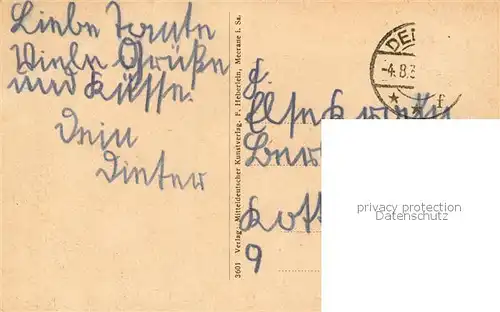 Liebe Tante
Viele Grüße
und Küsse.
Dein
Dieter
3601 Verlag: Mitteldeutscher Kunstverlag. F. Heiherlein, Meerane i. Sa.
DE
-4.8.3
f
Else
Ber
Kott
9
privacy protection
Datenschutz